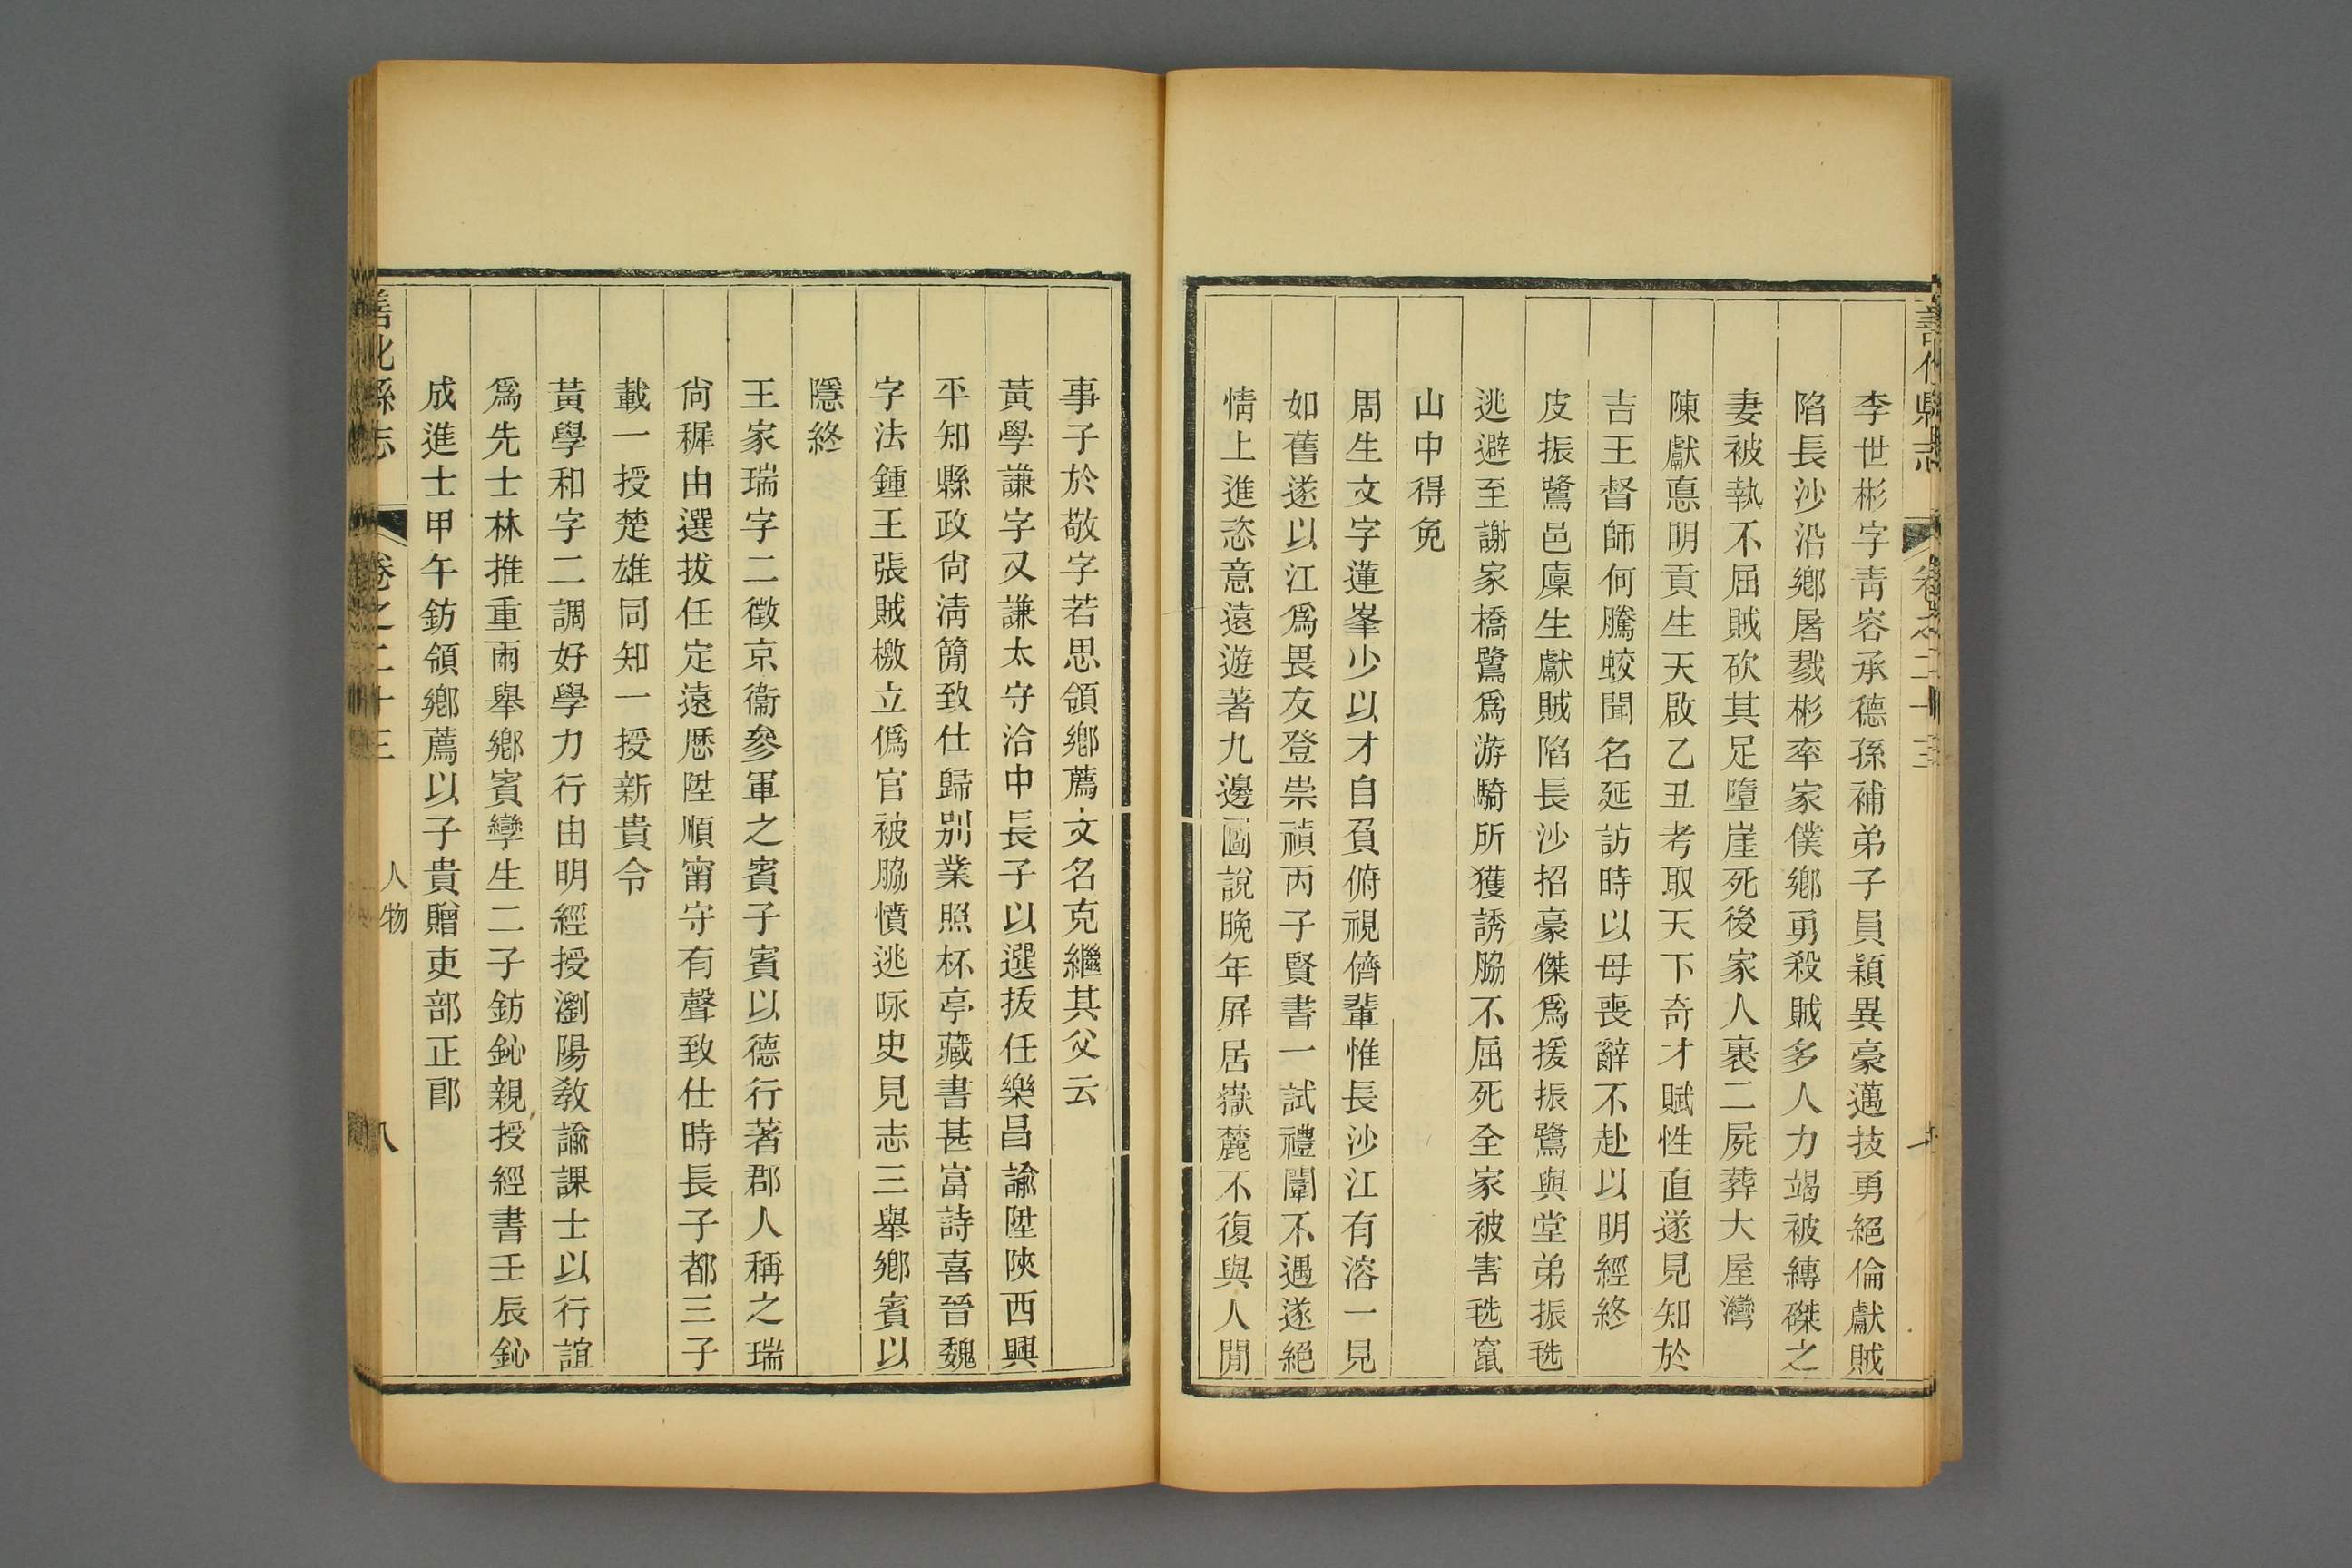 善化縣志
卷之二十三
李世彬字靑容承德孫補弟子員穎異豪邁技勇絕倫獻賊
陷長沙沿鄕屠戮彬率家僕鄕勇殺賊多人力竭被縛磔之
妻被執不屈賊砍其足墮崖死後家人裹二屍葬大屋灣
陳獻憙明貢生天啟乙丑考取天下奇才賦性直遂見知於
吉王督師何騰蛟聞名延訪時以母喪辭不赴以明經終
皮振鷺邑廩生獻賊陷長沙招豪傑爲援振鷺與堂弟振毨
逃避至謝家橋鷺爲游騎所獲誘脇不屈死全家被害毨竄
山中得免
周生文字蓮峯少以才自負俯視儕輩惟長沙江有溶一見
如舊遂以江爲畏友登崇禎丙子賢書一試禮闈不遇遂絕
情上進恣意遠遊著九邊圖說晚年屏居嶽麓不復與人閒
事子於敬字若思領鄕薦文名克繼其父云
黃學謙字又謙太守洽中長子以選拔任樂昌諭陞陝西興
平知縣政尙淸簡致仕歸别業照杯亭藏書甚富詩喜晉魏
字法鍾王張賊檄立僞官被脇憤逃咏史見志三舉鄕賓以
隱終
王家瑞字二徵京衞參軍之賓子賓以德行著郡人稱之瑞
尙穉由選拔任定遠歷陞順甯守有聲致仕時長子都三子
載一授楚雄同知一授新貴令
黃學和字二調好學力行由明經授瀏陽敎諭課士以行誼
爲先士林推重兩舉鄕賓孿生二子鈁鈊親授經書壬辰鈊
成進士甲午鈁領鄕薦以子貴贈吏部正郎
善化縣志
卷之二十三
人物
八